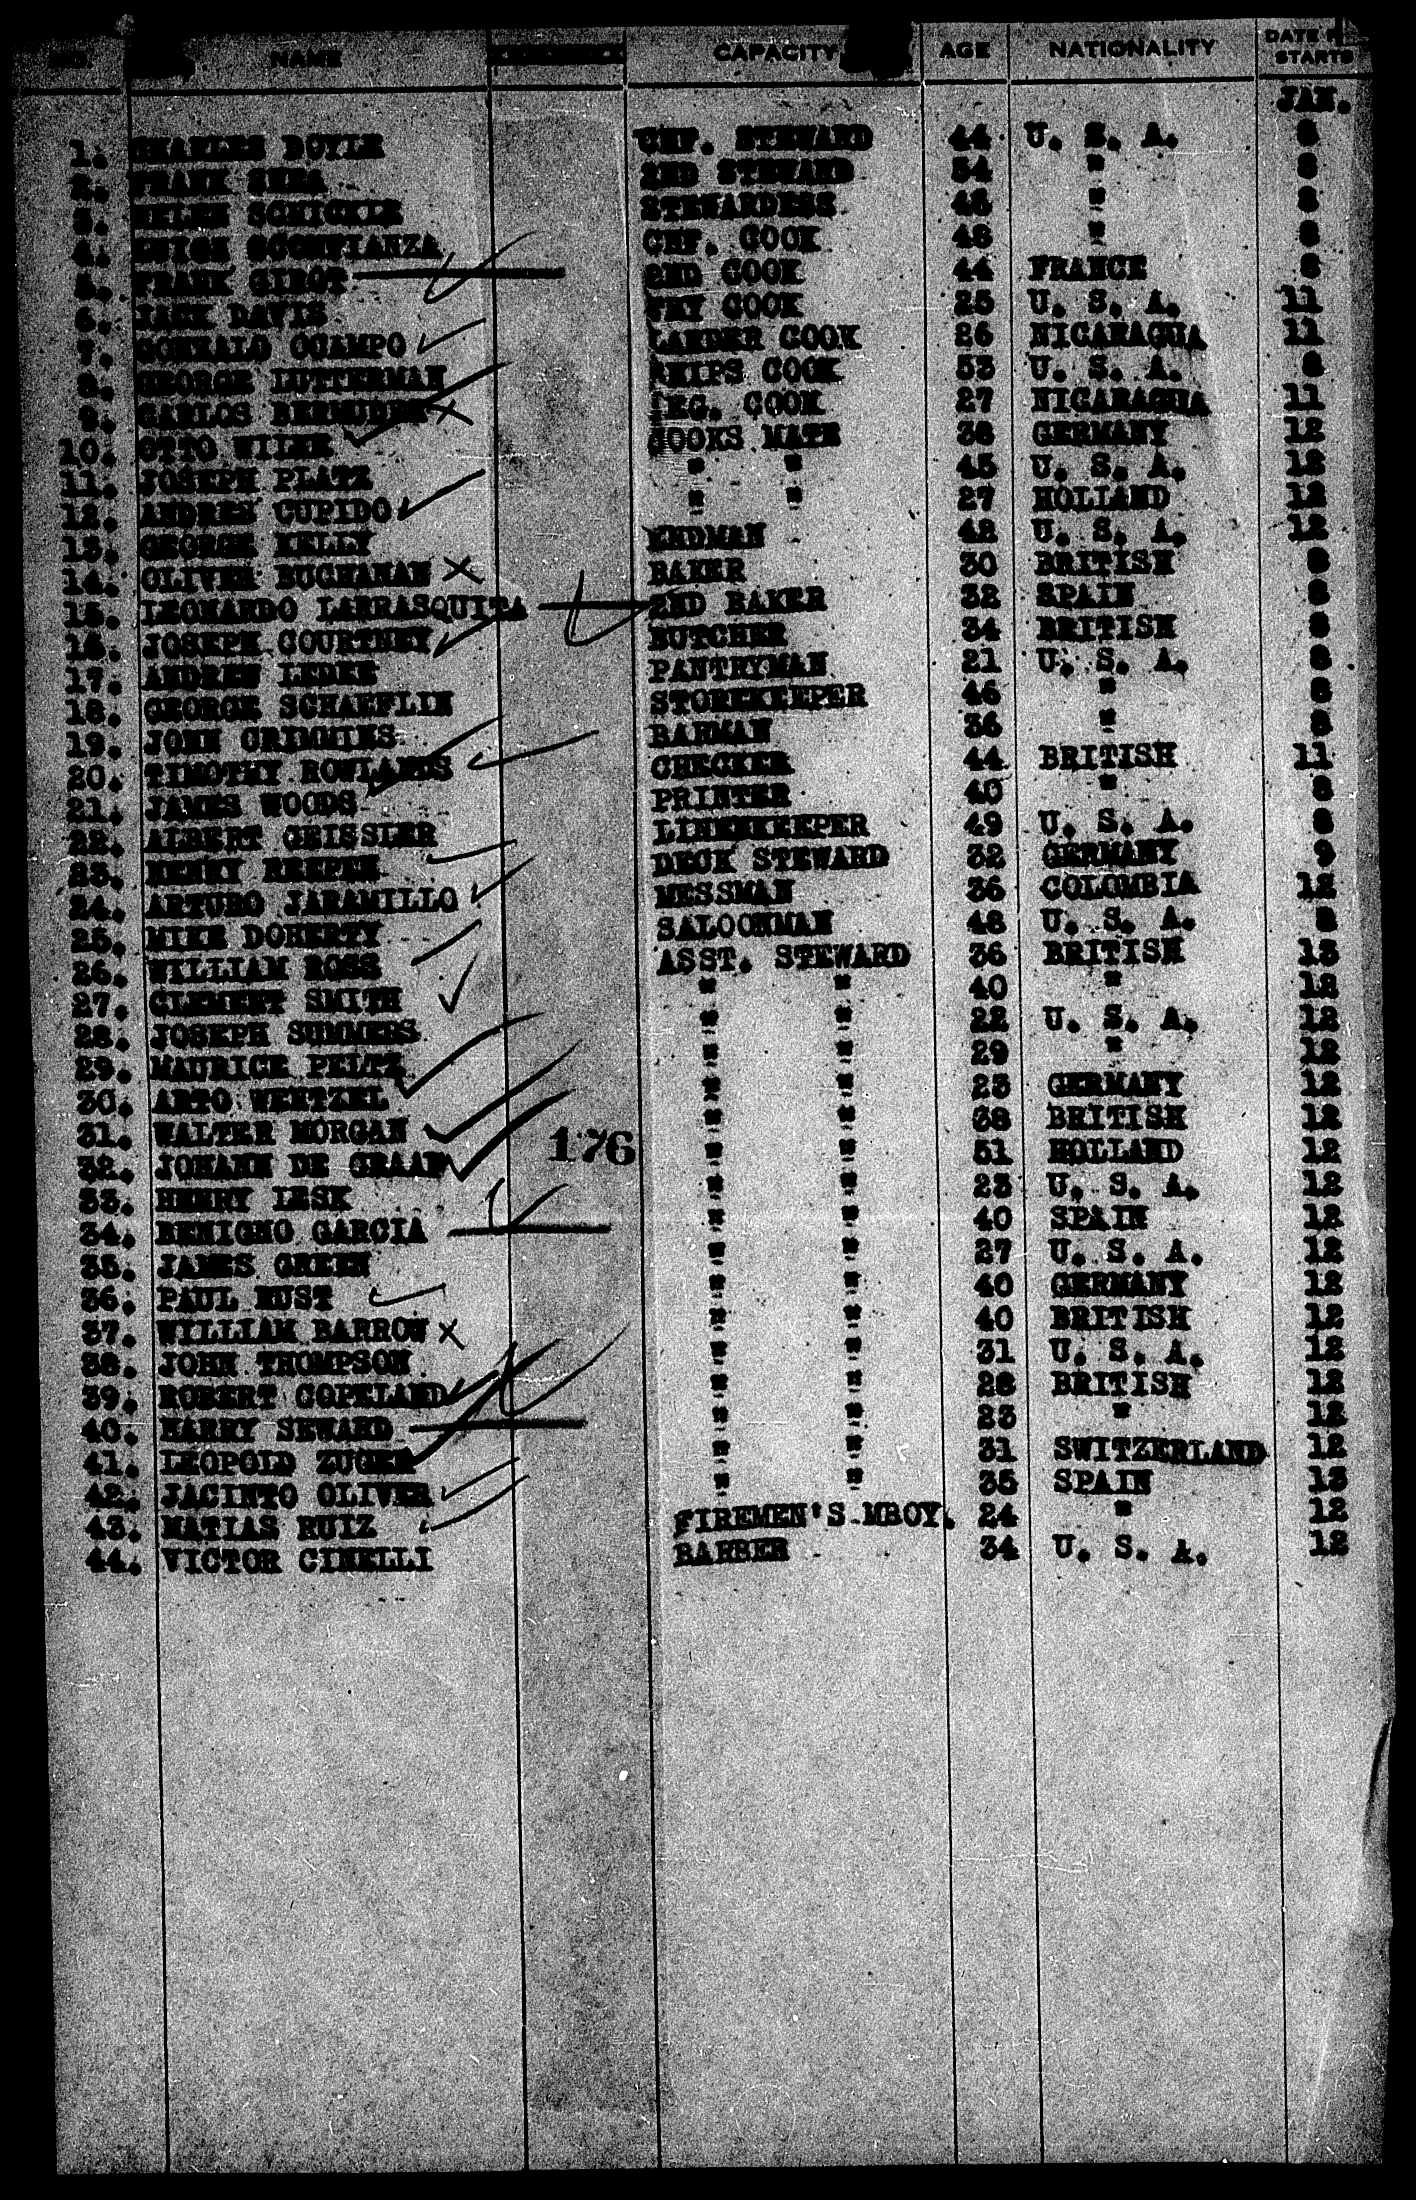 NO. NAME CAPACITY AGE NATIONALITY DATE STARTS
JAN.
1. CHARLES BOYLE CHF. STEWARD 44 U. S. A. 8
2. FRANK SHEA 2ND STEWARD 34 " 8
3. HELEN SCHICKLE STEWARDESS 48 " 8
4. LUIGI SCONFIANZA CHF. COOK 48 " 8
5. FRANK GIROT 2ND COOK 44 FRANCE 8
6. JACK DAVIS COOK 25 U. S. A. 11
7. GONZALO OCAMPO LARDER COOK 26 NICARAGUA 11
8. GEORGE LUTTERMAN COOK 53 U. S. A. 8
9. CARLOS BERMUDEZ COOK 27 NICARAGUA 11
10. OTTO WILKE COOKS MATE 36 GERMANY 12
11. JOSEPH PLATZ " " 45 U. S. A. 12
12. ANDREW CUPIDO " " 27 HOLLAND 12
13. GEORGE KELLY 42 U. S. A. 12
14. OLIVER BUCHANAN BAKER 30 BRITISH 8
15. LEONARDO LARRASQUITA 2ND BAKER 32 SPAIN 8
16. JOSEPH COURTNEY BUTCHER 34 BRITISH 8
17. ANDREW LEMKE PANTRYMAN 21 U. S. A. 8
18. GEORGE SCHAEFLIN STOREKEEPER 46 " 8
19. JOHN CRIMMINS BARMAN 36 " 8
20. TIMOTHY ROWLANDS CHECKER 44 BRITISH 11
21. JAMES WOODS PRINTER 40 " 8
22. ALBERT GEISSLER LINENKEEPER 49 U. S. A. 8
23. HENRY REEPEN DECK STEWARD 32 GERMANY 9
24. ARTURO JARAMILLO MESSMAN 36 COLOMBIA 12
25. MIKE DOHERTY SALOONMAN 48 U. S. A. 8
26. WILLIAM ROSS ASST. STEWARD 36 BRITISH 13
27. CLEMENT SMITH " " 40 " 12
28. JOSEPH SUMMERS " " 22 U. S. A. 12
29. MAURICE PELTZ " " 29 " 12
30. ARTO WENTZEL " " 23 GERMANY 12
31. WALTER MORGAN " " 38 BRITISH 12
32. JOHANN DE GRAAF 176 " " 51 HOLLAND 12
33. HENRY LESK " " 23 U. S. A. 12
34. BENIGNO GARCIA " " 40 SPAIN 12
35. JAMES GREEN " " 27 U. S. A. 12
36. PAUL RUST " " 40 GERMANY 12
37. WILLIAM BARROW " " 40 BRITISH 12
38. JOHN THOMPSON " " 31 U. S. A. 12
39. ROBERT COPELAND " " 28 BRITISH 12
40. HARRY SEWARD " " 23 " 12
41. LEOPOLD ZUGER " " 31 SWITZERLAND 12
42. JACINTO OLIVER " " 35 SPAIN 13
43. MATIAS RUIZ FIREMEN'S MBOY. 24 " 12
44. VICTOR CINELLI BARBER 34 U. S. A. 12